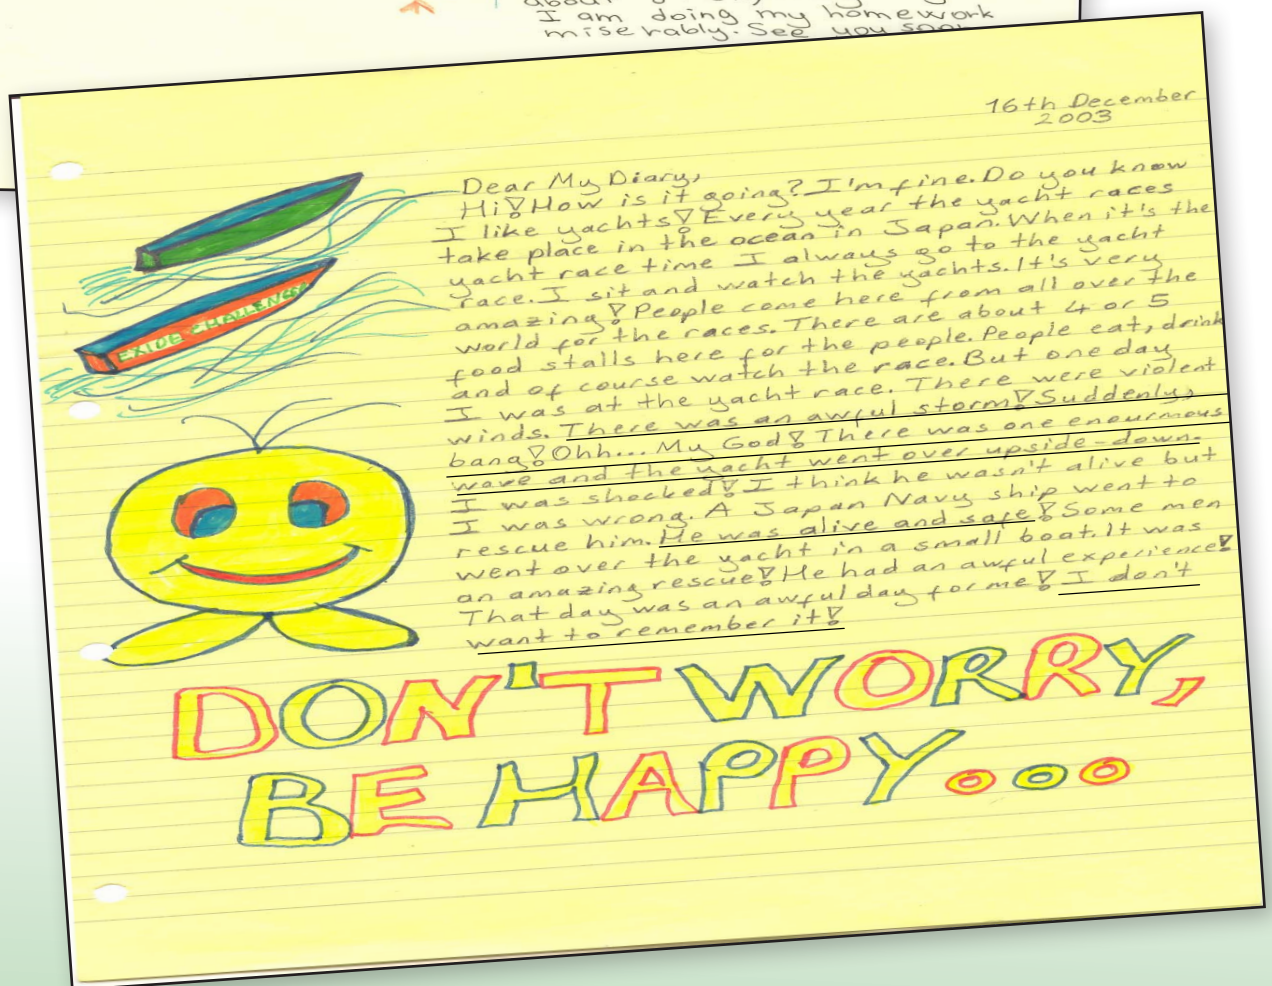 I am doing my homework
miserably. See you soon
16th December
2003
Dear My Diary,
Hi! How is it going? I'm fine. Do you know
I like yachts! Every year the yacht races
take place in the ocean in Japan. When it's the
yacht race time I always go to the yacht
race. I sit and watch the yachts. It's very
amazing! People come here from all over the
world for the races. There are about 4 or 5
food stalls here for the people. People eat, drink
and of course watch the race. But one day
I was at the yacht race. There were violent
winds. There was an awful storm! Suddenly,
bang! Ohh... My God! There was one enourmous
wave and the yacht went over upside-down.
I was shocked! I think he wasn't alive but
I was wrong. A Japan Navy ship went to
rescue him. He was alive and safe! Some men
went over the yacht in a small boat. It was
an amazing rescue! He had an awful experience!
That day was an awful day for me! I don't
want to remember it!
EXIDE CHALLENGER
DON'T WORRY,
BE HAPPY...